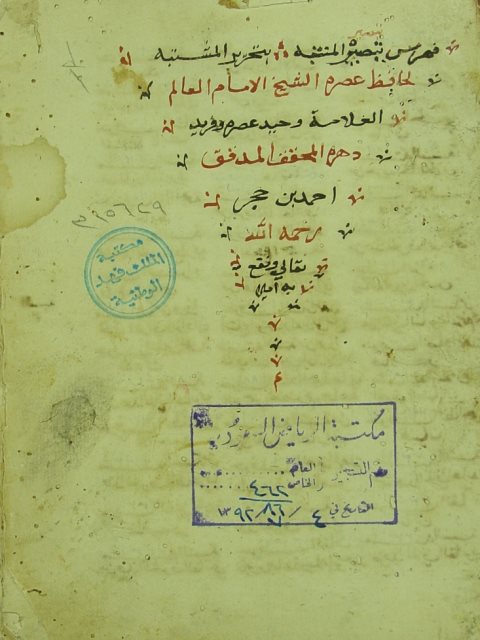 فهرس تبصير المنتبه بتحرير المشتبه
لحافظ عصره الشيخ الامام العالم
العلامة وحيد عصره وفريد
دهره المحقق المدقق
احمد بن حجر
رحمه الله
تعالى ونفع
به آمين
م
٣١٥٦٢٩
مكتبة
الملك فهد
الوطنية
مكتبة الرياض السعودية
رقم التسجيل العام
والخاص ٤٦٢
التاريخ في ٤ / ٧ / ١٣٩٢